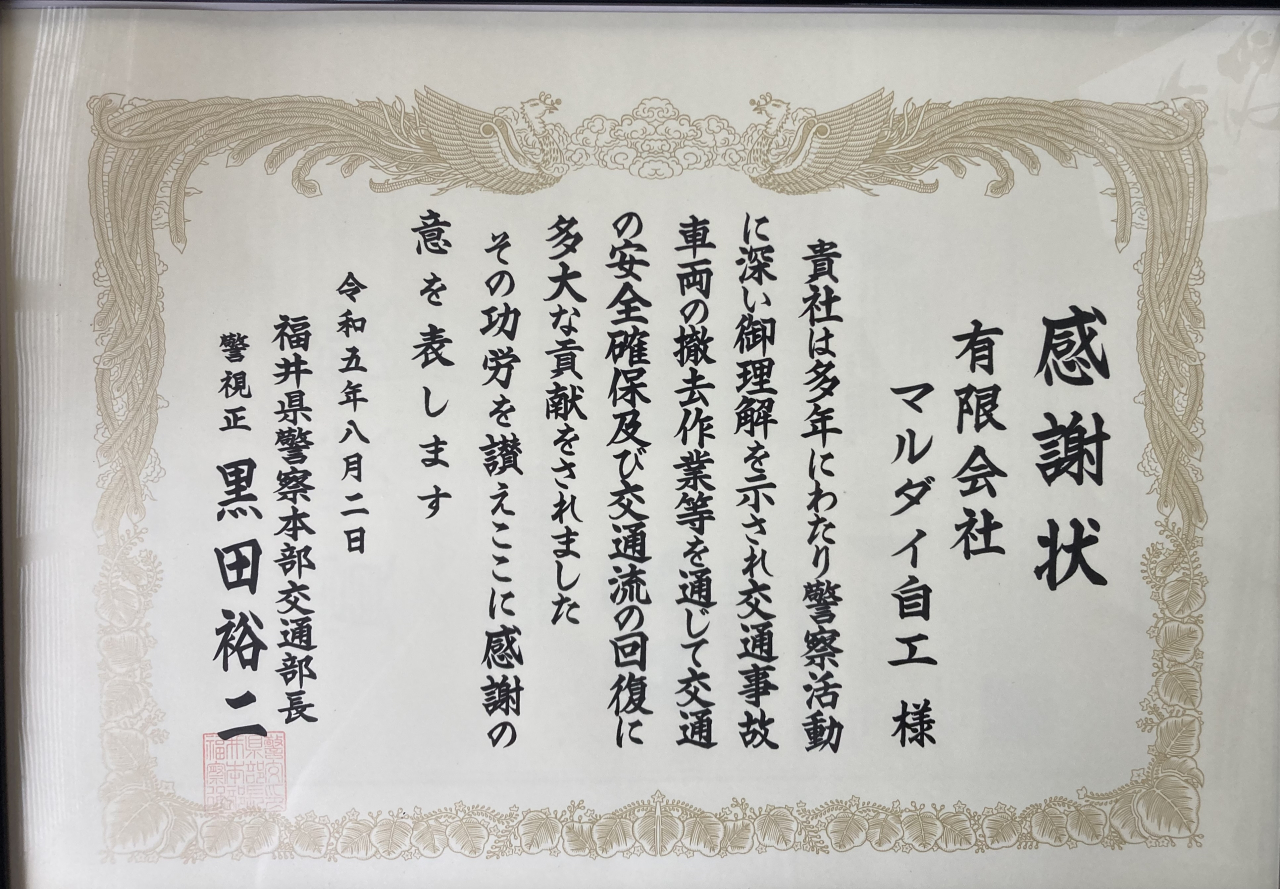 感謝状
有限会社
マルダイ自工 様
貴社は多年にわたり警察活動
に深い御理解を示され交通事故
車両の撤去作業等を通じて交通
の安全確保及び交通流の回復に
多大な貢献をされました
その功労を讃えここに感謝の
意を表します
令和五年八月二日
福井県警察本部交通部長
警視正 黒田裕二